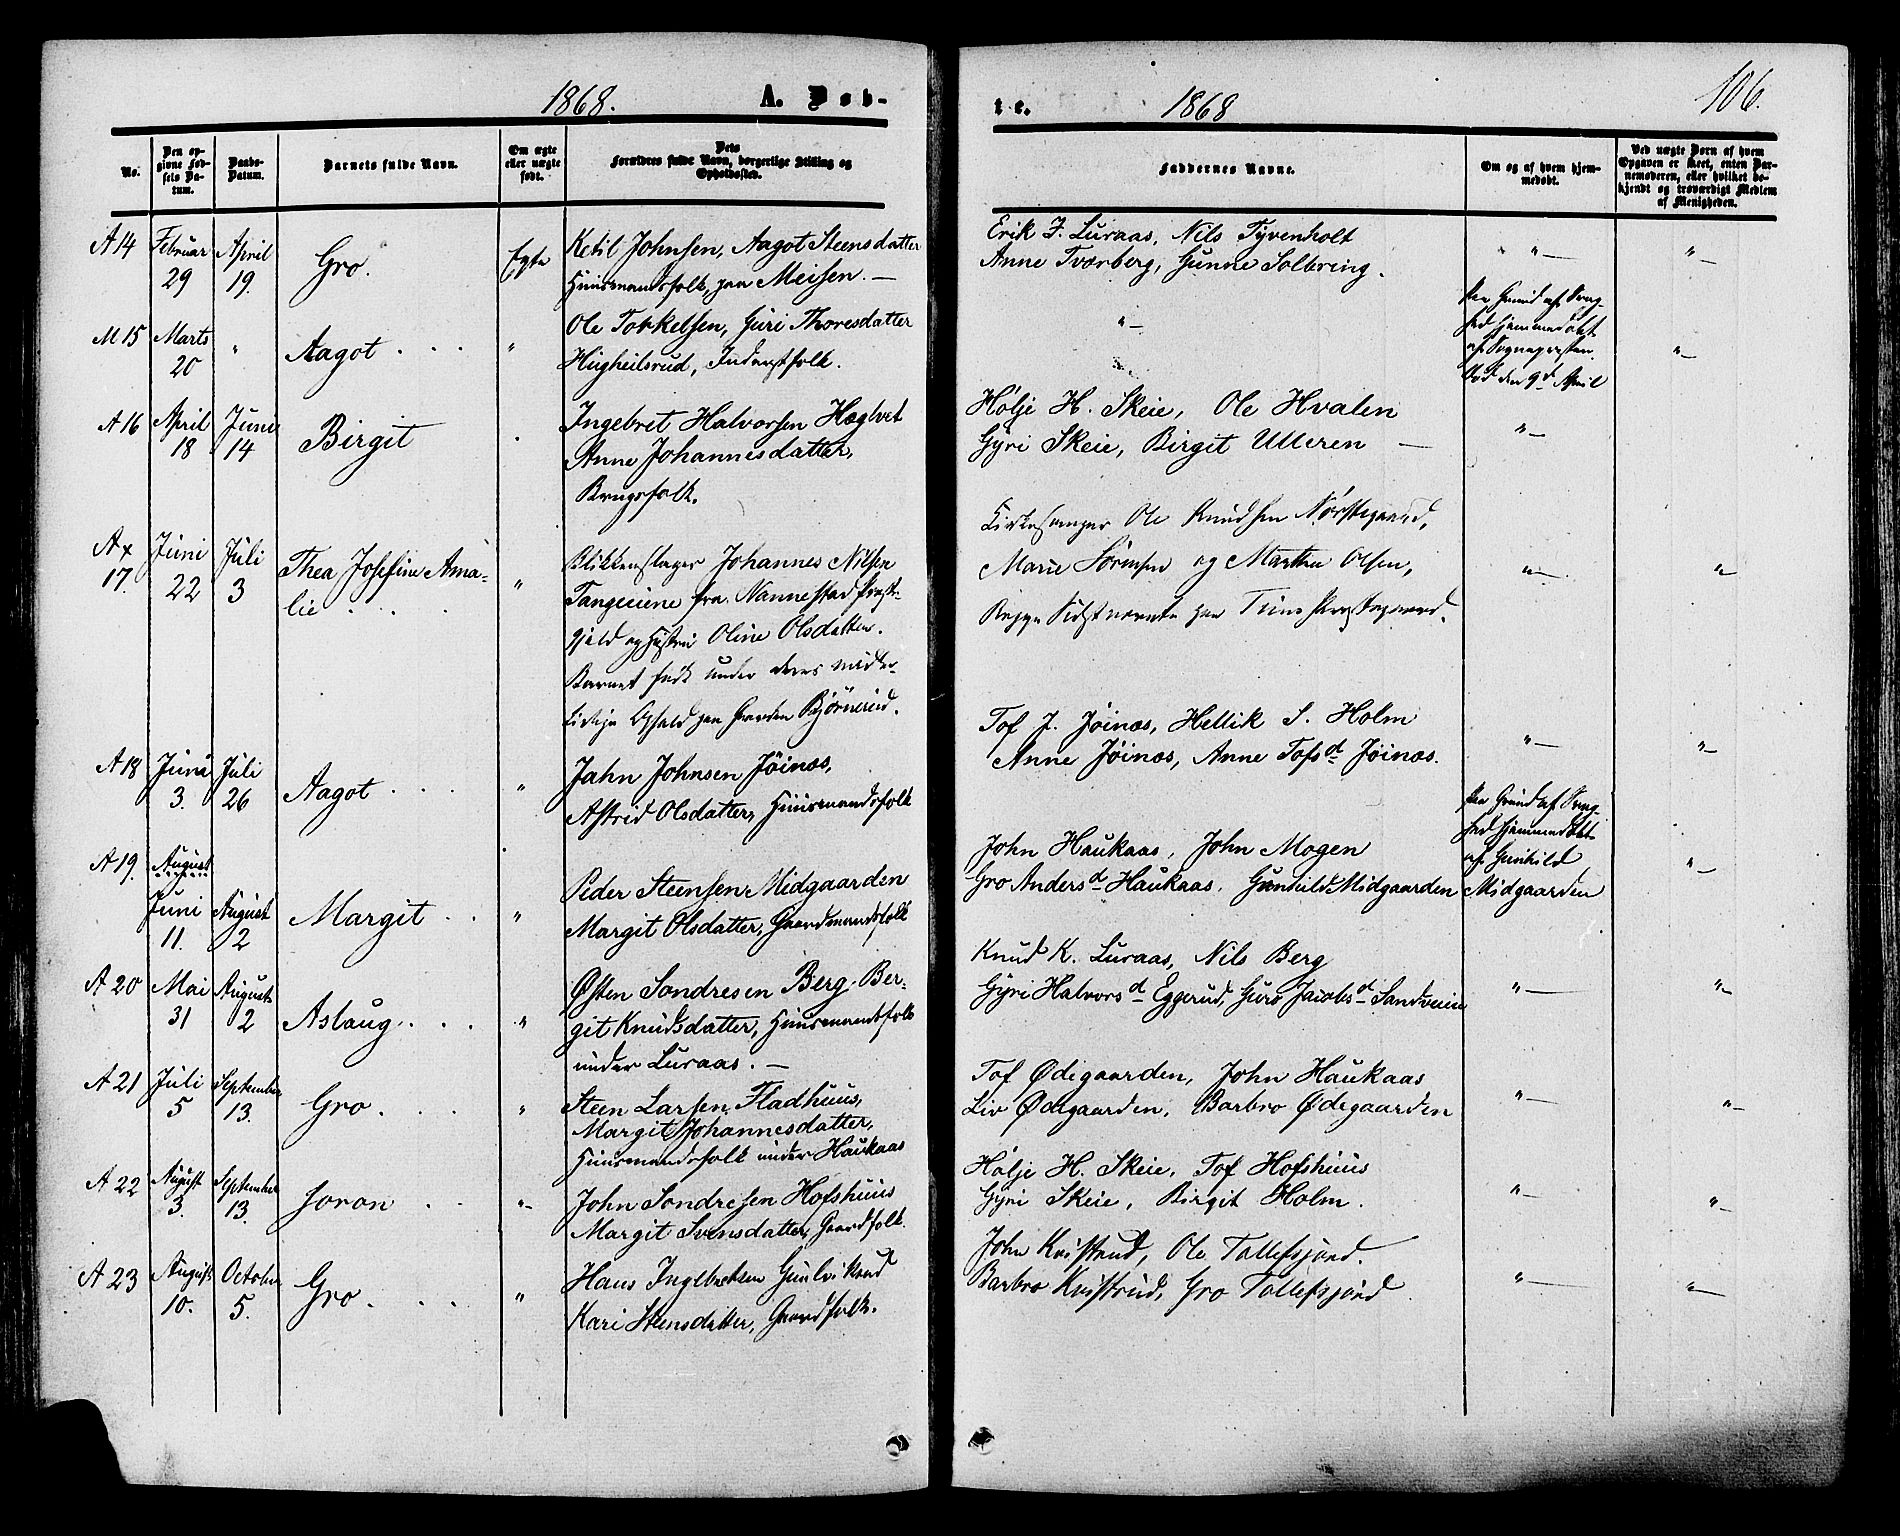 1868. A. Døb-
No.
Den opgivne Fødsels Datum.
Daabs-Datum.
Barnets fulde Navn.
Om ægte eller uægte født.
Dets Forældres fulde Navn, borgerlige Stilling og Opholdssted.
A 14 Februar 29 April 19. Gro. Ægte
Ketil Johnsen, Aagot Steensdatter
Huusmandsfolk, paa Meisen. —
M 15 Marts 20 " Aagot . . . "
Ole Torkelsen, Guri Thoresdatter
Hugheilsrud, Inderstfolk.
A 16 April 18 Juni 14 Birgit
Ingebret Halvorsen Hæglvet
Anne Johannesdatter,
Brugsfolk.
A x 17. Juni 22 Juli 3 Thea Josefine Ama-
lie . . . "
Blikkenslager Johannes Nilsen
Tangeiene fra Nannestad Præste-
gjeld og Hustru Oline Olsdatter.
Barnet født under deres midler-
tidige Ophold paa Gaarden Bjørnerud.
A 18 Juni 3. Juli 26 Aagot . . . "
Jahn Johnsen Jøinæs,
Astrid Olsdatter, Huusmandsfolk
A 19. August Juni 11. August 2 Margit . . "
Peder Steensen Midgaarden
Margit Olsdatter, Gaardmandsfolk
A 20 Mai 31 August 2 Aslaug . . . "
Østen Sondresen Berg. Ber-
git Knudsdatter, Huusmandsfolk
under Luraas. —
A 21 Juli 5 September 13. Gro. . . . "
Steen Larsen Fladhuus,
Margit Johannesdatter,
Huusmandsfolk under Haukaas
A 22 August 3. September 13. Joron . . "
John Sondresen Hofshuus
Margit Svensdatter, Gaardfolk.
A 23 August 10. October 5. Gro . . . "
Hans Ingebretsen Gunleiksrud
Kari Steensdatter, Gaardfolk.
te. 1868 106.
Faddernes Navne.
Om og af hvem hjemmedøbt.
Ved uægte Børn af hvem Opgaven er skeet, enten Barnemoderen, eller hvilket bekjendt og troværdigt Medlem af Menigheden.
Erik J. Luraas, Nils Tyvenholt
Anne Tværberg, Gunne Solbring.
" —
Paa Grund af Svag-
hed hjemmedøbt
af Sognepresten.
Død den 9d April
Hølje H. Skeie, Ole Hvalen
Gyri Skeie, Birgit Ulleren —
Kirkesanger Ole Knudsen Nørstegaard,
Marie Sørensen og Marthe Olsen,
Begge Sidstnævnte paa Tins Præstegaard.
Tof J. Jøinæs, Hellik S. Holm
Anne Jøinæs, Anne Tofsd Jøinæs.
John Haukaas, John Mogen
Gro Andersd Haukaas, Gunhild Midgaarden
Paa Grund af Svag-
hed hjemmedøbt
af Gunhild
Midgaarden
Knud K. Luraas, Nils Berg
Gyri Halvorsd Eggerud, Guro Jacobsd Sandveien
Tof Ødegaarden, John Haukaas
Liv Ødegaarden, Barbro Ødegaarden
Hølje H. Skeie, Tof Hofshuus
Gyri Skeie, Birgit Holm.
John Kvistrud, Ole Tollefsjord.
Barbro Kvistrud, Gro Tollefsjord